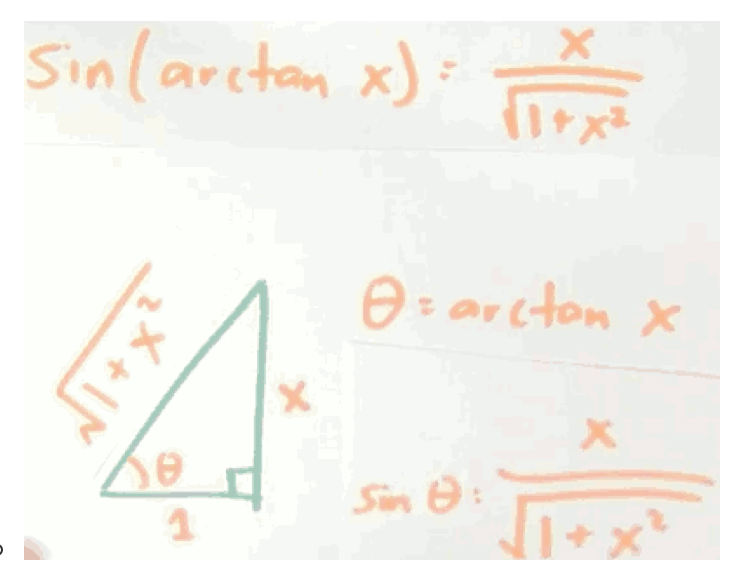 Sin(arctan x) = x/√(1+x²)
√(1+x²)
θ = arctan x
x
θ
1
sin θ = x/√(1+x²)